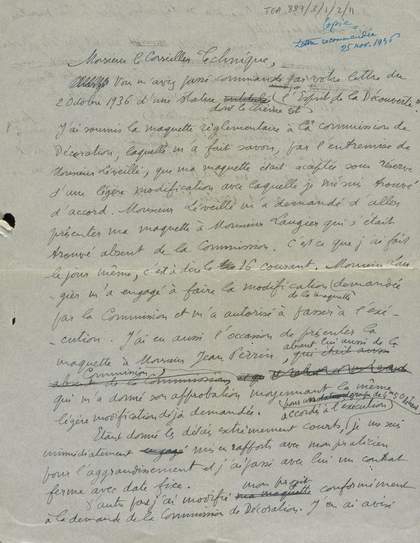 TGA 889/3/1/2/11
Copie
Lettre recommandée
25 nov. 1936
Monsieur le Conseiller Technique,
Vous m'avez passé commande par votre lettre du
2 Octobre 1936 d'une statue dont le thème est "l'Esprit de la Découverte"
J'ai soumis la maquette réglementaire à la commission de
Décoration, laquelle m'a fait savoir, par l'entremise de
Monsieur Léveillé, que ma maquette était acceptée sous réserve
d'une légère modification avec laquelle je me suis trouvé
d'accord. Monsieur Léveillé m'a demandé d'aller
présenter ma maquette à Monsieur Laugier qui s'était
trouvé absent de la Commission. C'est ce que j'ai fait
le jour même, c'est à dire le 16 courant. Monsieur Lau-
gier m'a engagé à faire la modification demandée
de la maquette
par la Commission et m'a autorisé à passer à l'exé-
cution. J'ai eu aussi l'occasion de présenter la
maquette à Monsieur Jean Perrin, absent lui aussi de la
Commission,
qui m'a donné son approbation moyennant la même
légère modification déjà demandée.
accords à l'exécution
Etant donné les délais extrêmement courts, je me suis
immédiatement mis en rapports avec mon praticien
pour l'aggrandissement et j'ai passé avec lui un contrat
ferme avec date fixe.
D'autre part j'ai modifié mon projet conformément
à la demande de la Commission de Décoration. J'en ai avisé